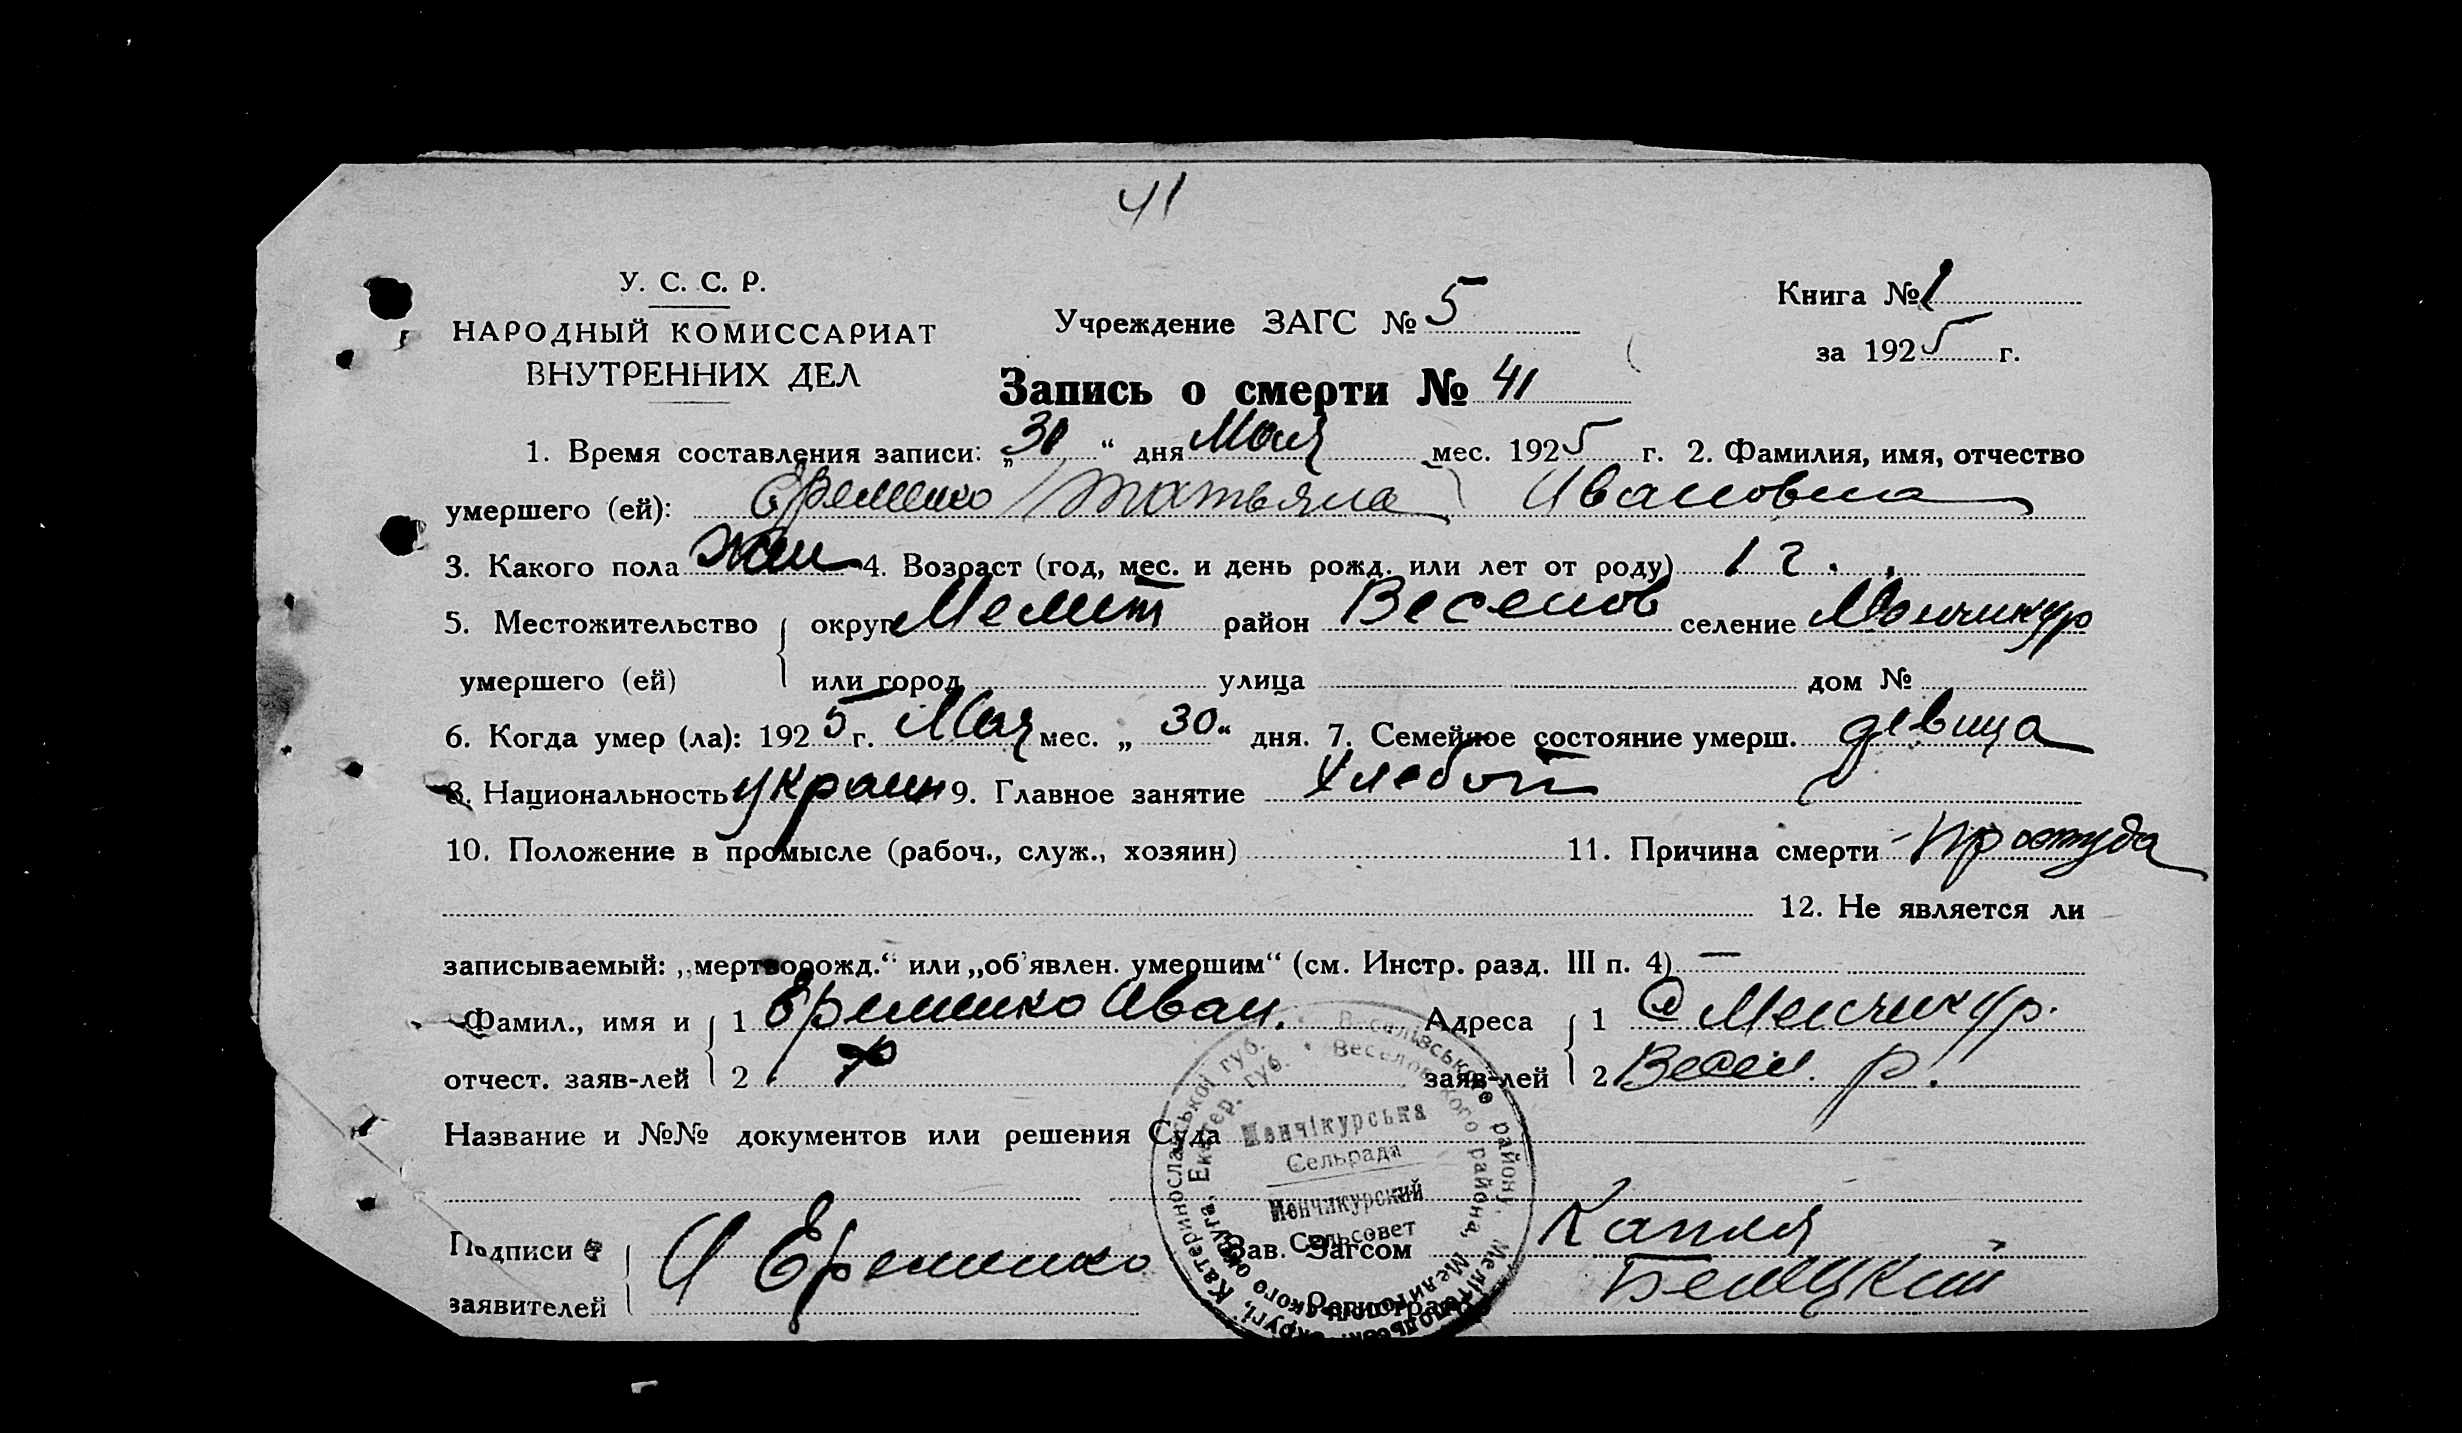 41
У. С. С. Р.
НАРОДНЫЙ КОМИССАРИАТ
ВНУТРЕННИХ ДЕЛ
Учреждение ЗАГС № 5
Книга № 1
за 1925 г.
Запись о смерти № 41
1. Время составления записи: „31“ дня Мая мес. 1925 г. 2. Фамилия, имя, отчество
умершего (ей): Еременко Татьяна Ивановна
3. Какого пола жен 4. Возраст (год, мес. и день рожд. или лет от роду) 1 г.
5. Местожительство округ Мелит район Веселов селение Менчикур
умершего (ей) или город улица дом №
6. Когда умер (ла): 1925 г. Мая мес. „30“ дня. 7. Семейное состояние умерш. девица
8. Национальность украин 9. Главное занятие Хлебоп
10. Положение в промысле (рабоч., служ., хозяин) 11. Причина смерти Простуда
12. Не является ли
записываемый: „мертворожд.“ или „об'явлен. умершим“ (см. Инстр. разд. III п. 4) —
Фамил., имя и 1 Еременко Иван. Адреса 1 С Менчикур.
отчест. заяв-лей 2 заяв-лей 2 Весел. р.
Название и №№ документов или решения Суда
Менчікурська
Сельрада
Менчикурский
Сельсовет
Катеринославської губ. Веселівського району, Мелітопольськ. округі,
Екатер. губ. Веселовского района, Мелитопольского округа,
Подписи И Еременко Зав. Загсом Капля
заявителей Регистратор Белецкий